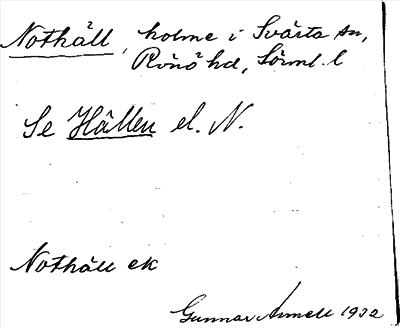 Nothäll, holme i Svärta sn,
Rönö hd, Sörml. l
Se Hällen el. N.
Nothäll ek
Gunnar Annell 1932